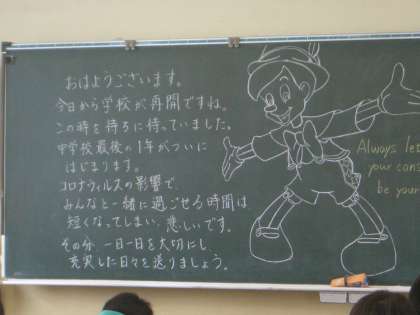 おはようございます。
今日から学校が再開ですね。
この時を待ちに待っていました。
中学校最後の1年がついに
はじまります。
コロナウィルスの影響で、
みんなと一緒に過ごせる時間は
短くなってしまい、悲しいです。
その分、一日一日を大切にし、
充実した日々を送りましょう。
Always let
your cons
be your